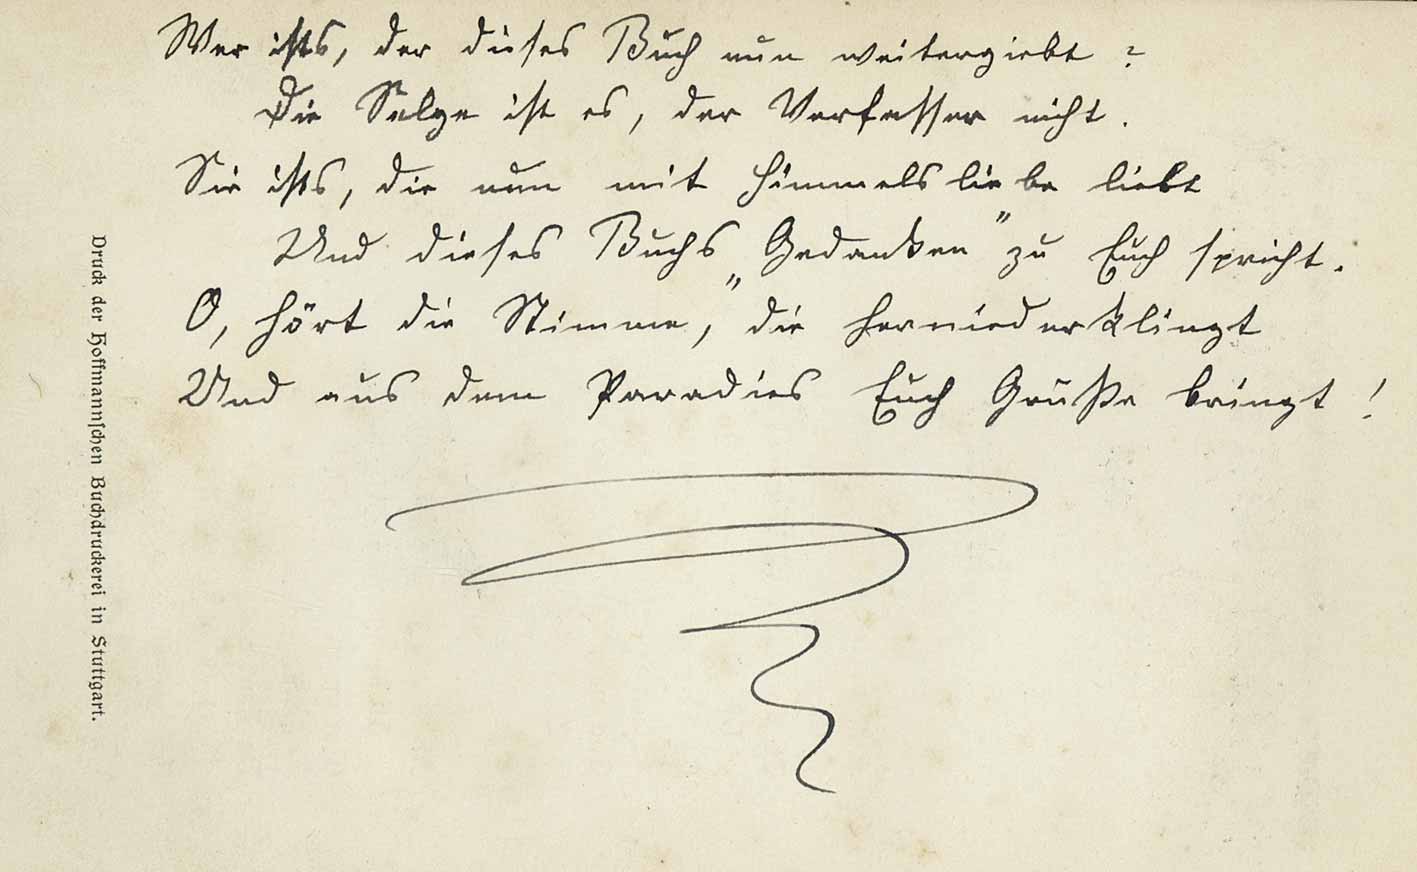 Wer ists, der dieses Buch nun weitergiebt?
Die Selge ist es, der Verfasser nicht.
Sie ists, die nun mit Himmelsliebe liebt
Und dieses Buchs „Gedanken” zu Euch spricht.
O, hört die Stimme, die herniederklingt
Und aus dem Paradies Euch Grüße bringt!
Druck der Hoffmannſchen Buchdruckerei in Stuttgart.